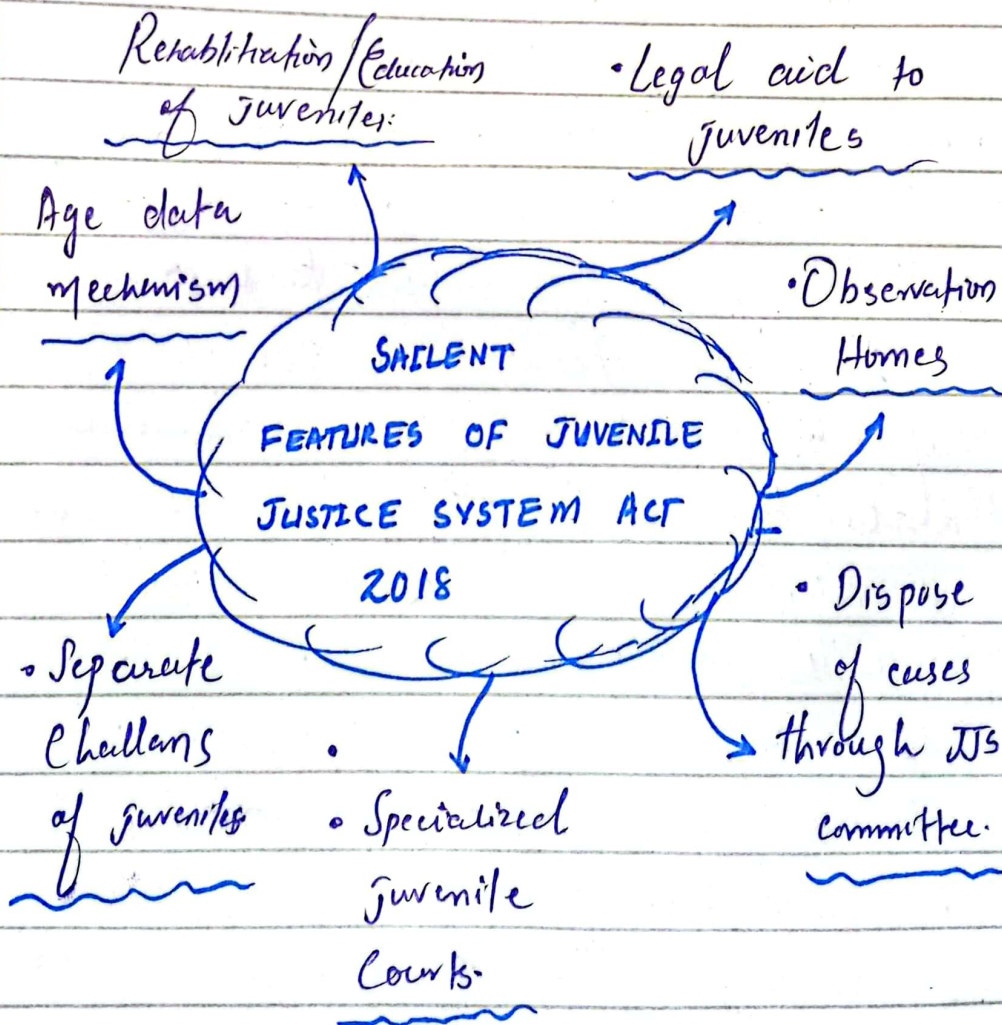 Rehablitation/Education
of juveniles:
• Legal aid to
juveniles
Age data
mechenism
• Observation
Homes
SAILENT
FEATURES OF JUVENILE
JUSTICE SYSTEM ACT
2018
• Dispose
of cases
through JJS
committee.
• Separate
Challans
of juveniles
•
• Specialized
juvenile
Courts.